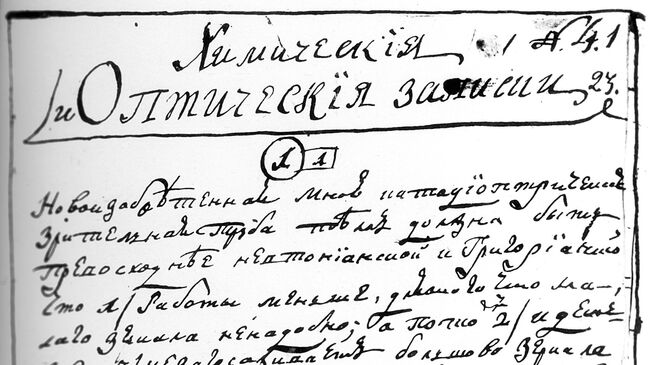 Химическія
и Оптическія записи 23.
1 1
Новоизобрѣтенная мною катадіоптрическая
зрительная труба тѣмъ должна быть
превосходнѣе невтоніанской и Григоріанской
что 1/ Работы меньше, для того что ма-
лаго зеркала ненадобно; 2/ и деше-
большово зеркала